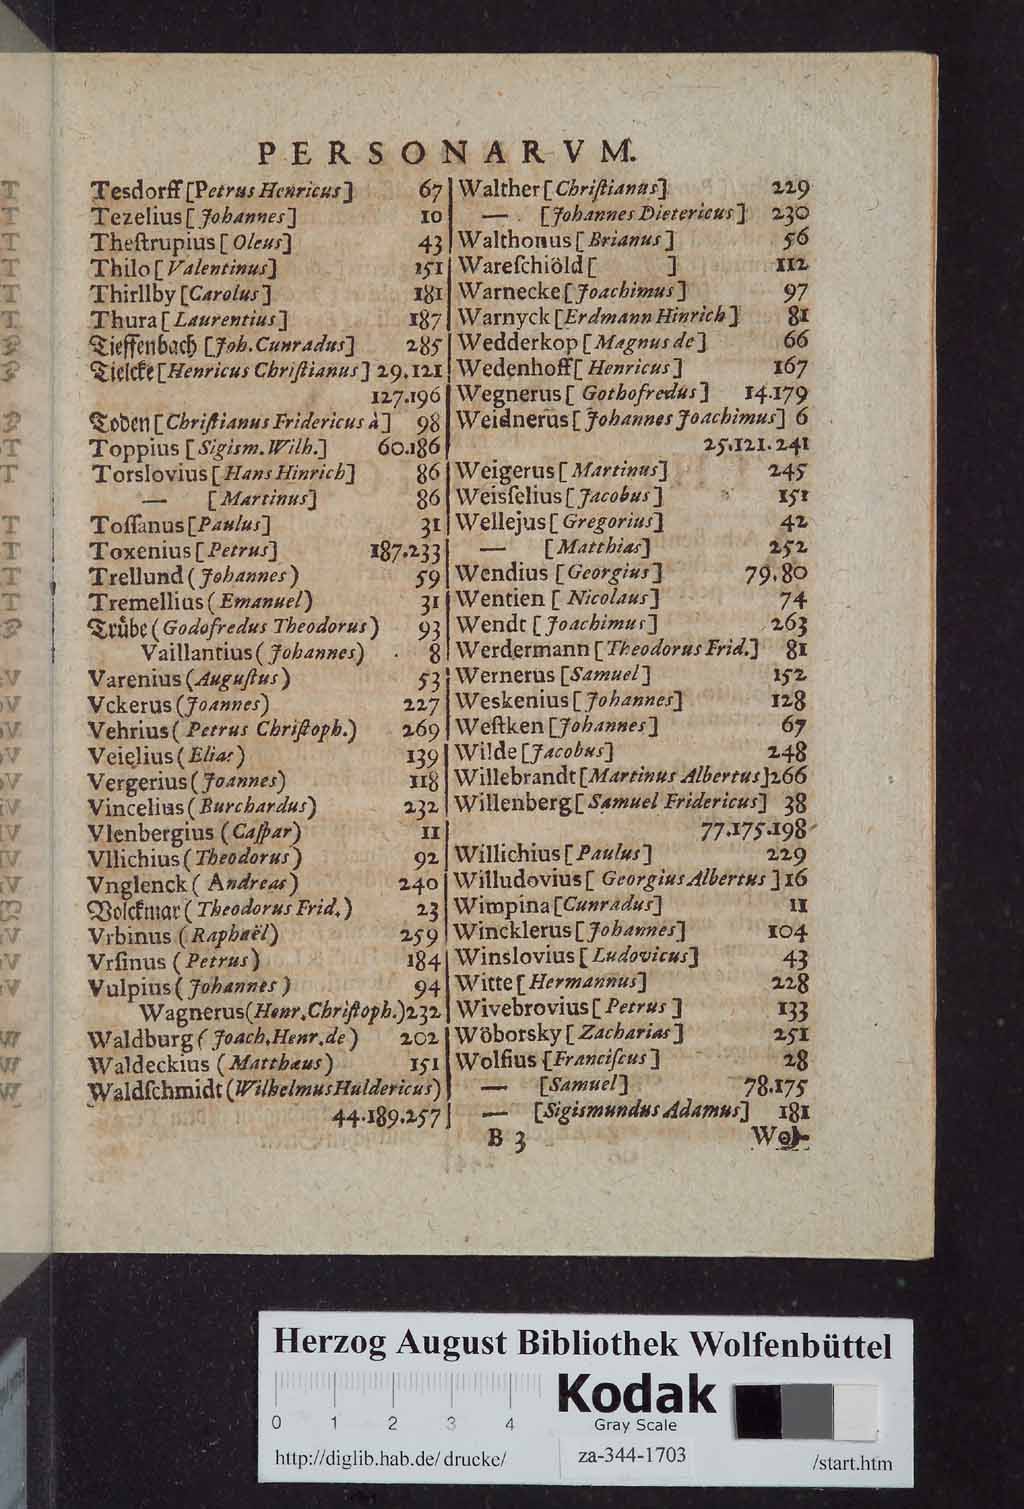 PERSONARVM.
Tesdorff [Petrus Henricus] 67
Tezelius [Johannes] 10
Theſtrupius [Oleus] 43
Thilo [Valentinus] 151
Thirllby [Carolus] 181
Thura [Laurentius] 187
Tieffenbach [Joh. Cunradus] 285
Tielcke [Henricus Chriſtianus] 29.121
127.196
Toden [Chriſtianus Fridericus à] 98
Toppius [Sigism. Wilh.] 60.186
Torslovius [Hans Hinrich] 86
— [Martinus] 86
Toſſanus [Paulus] 31
Toxenius [Petrus] 187.233
Trellund (Johannes) 59
Tremellius (Emanuel) 31
Truͤbe (Godofredus Theodorus) 93
Vaillantius (Johannes) 8
Varenius (Auguſtus) 53
Vckerus (Joannes) 227
Vehrius (Petrus Chriſtoph.) 269
Veielius (Elias) 139
Vergerius (Joannes) 118
Vincelius (Burchardus) 232
Vlenbergius (Caſpar) 11
Vllichius (Theodorus) 92
Vnglenck (Andreas) 240
Volckmar (Theodorus Frid.) 23
Vrbinus (Raphaël) 259
Vrſinus (Petrus) 184
Vulpius (Johannes) 94
Wagnerus (Henr. Chriſtoph.) 232
Waldburg (Joach. Henr. de) 202
Waldeckius (Matthæus) 151
Waldſchmidt (Wilhelmus Huldericus)
44.189.257
Walther [Chriſtianus] 229
— . [Johannes Dietericus] 230
Walthonus [Brianus] 56
Wareſchiöld [ ] 112
Warnecke [Joachimus] 97
Warnyck [Erdmann Hinrich] 81
Wedderkop [Magnus de] 66
Wedenhoff [Henricus] 167
Wegnerus [Gothofredus] 14.179
Weidnerus [Johannes Joachimus] 6
25.121.241
Weigerus [Martinus] 245
Weisſelius [Jacobus] 151
Wellejus [Gregorius] 42
— [Matthias] 252
Wendius [Georgius] 79.80
Wentien [Nicolaus] 74
Wendt [Joachimus] 263
Werdermann [Theodorus Frid.] 81
Wernerus [Samuel] 152
Weskenius [Johannes] 128
Weſtken [Johannes] 67
Wilde [Jacobus] 248
Willebrandt [Martinus Albertus] 266
Willenberg [Samuel Fridericus] 38
77.175.198
Willichius [Paulus] 229
Willudovius [Georgius Albertus] 16
Wimpina [Cunradus] 11
Wincklerus [Johannes] 104
Winslovius [Ludovicus] 43
Witte [Hermannus] 228
Wivebrovius [Petrus] 133
Wöborsky [Zacharias] 251
Wolfius [Franciſcus] 28
— [Samuel] 78.175
— [Sigismundus Adamus] 181
B 3 Wol-
Herzog August Bibliothek Wolfenbüttel
0 1 2 3 4
Kodak
Gray Scale
http://diglib.hab.de/drucke/ za-344-1703 /start.htm